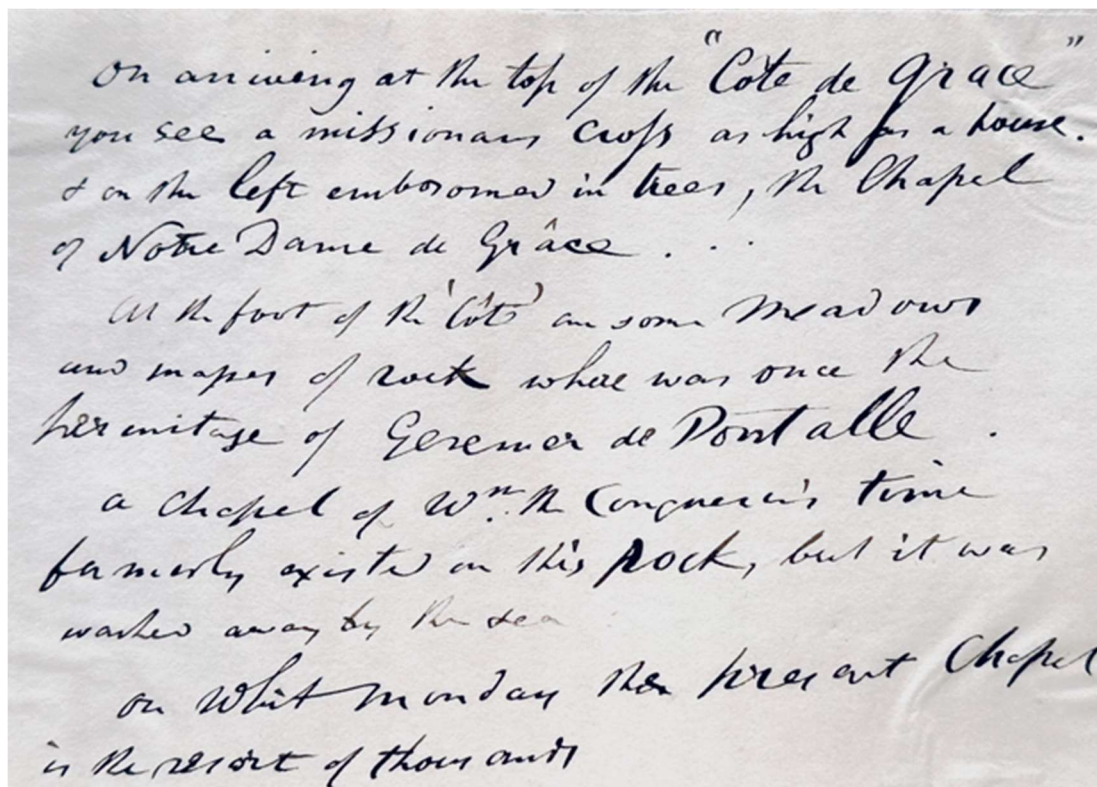 On arriving at the top of the "Côte de Grâce"
you see a missionary cross as high as a house.
& on the left embosomed in trees, the Chapel
of Notre Dame de Grâce . . .
At the foot of the 'Côte' are some meadows
and masses of rock where was once the
hermitage of Geremer de Pontalle .
a Chapel of Wm. the Conqueror's time
formerly existed on this rock, but it was
washed away by the sea
on Whit Monday the present Chapel
is the resort of thousands